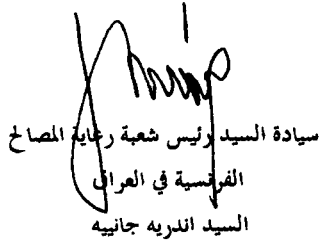 سيادة السيد رئيس شعبة رعاية المصالح
الفرنسية في العراق
السيد اندريه جانييه